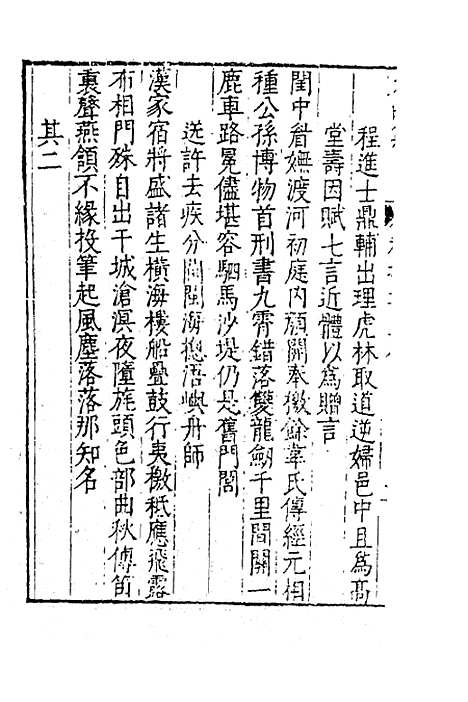 程進士鼎輔出理虎林取道逆婦邑中且爲高
堂壽因賦七言近體以爲贈言
閨中眷嫵渡河初庭內顏開奉檄餘韋氏傳經元相
種公孫博物首刑書九霄錯落雙龍劒千里間關一
鹿車路冕儘堪容駟馬沙堤仍是舊門閭
送許去疾分閫閩海摠浯嶼舟師
漢家宿將盛諸生橫海樓船疊鼓行夷檄秪應飛露
布相門殊自出干城滄溟夜墮旄頭色部曲秋傳笳
裏聲燕頷不緣投筆起風塵落落那知名
其二